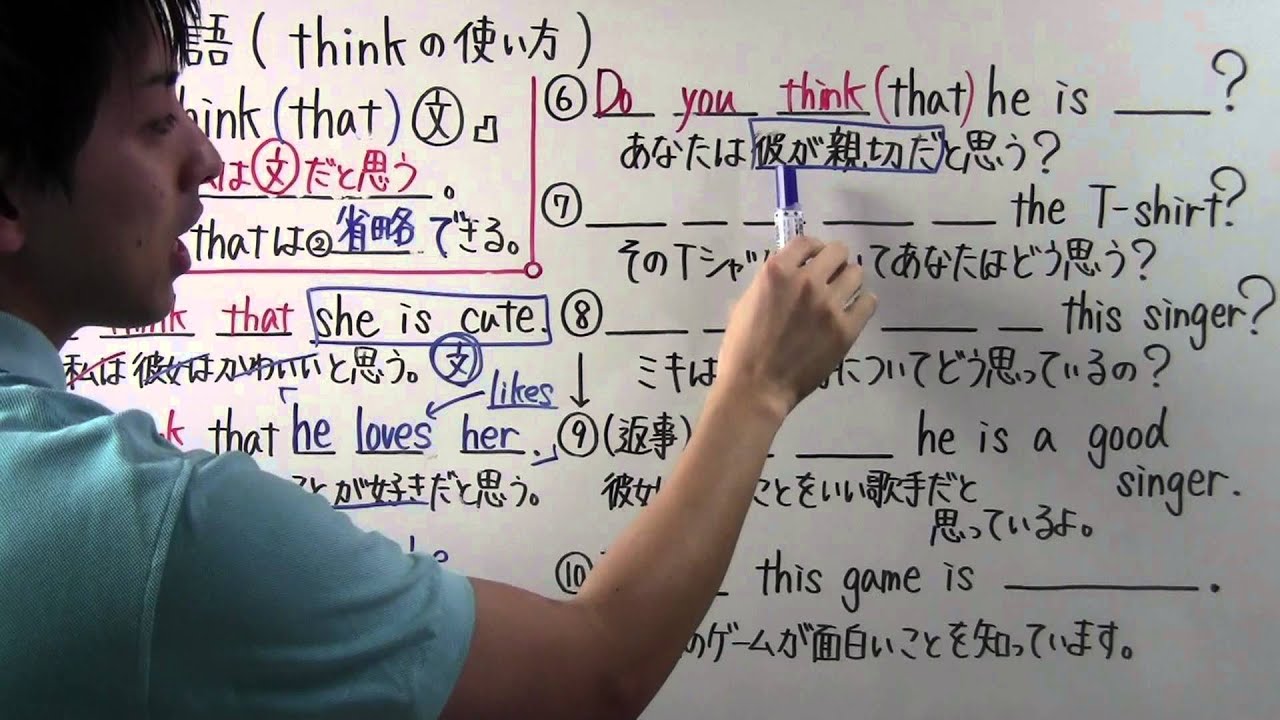 語(thinkの使い方)
think (that) 文
は文だと思う。
thatは②省略できる。
think that she is cute.
私は彼女はかわいいと思う。文
likes
that he loves her.
ことが好きだと思う。
⑥ Do you think (that) he is ____?
あなたは彼が親切だと思う?
⑦ ____ __ ____ ____ ____ the T-shirt?
そのTシャツ いてあなたはどう思う?
⑧ ____ ____ ____ __ this singer?
ミキは についてどう思っているの?
⑨ (返事) ____ he is a good singer.
彼女 ことをいい歌手だと
思っているよ。
⑩ this game is ________.
のゲームが面白いことを知っています。